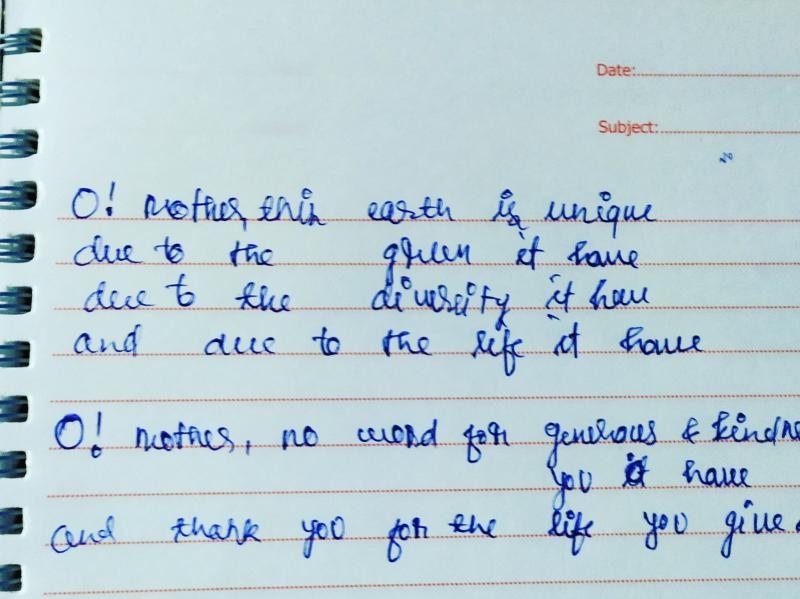 Date:
Subject:
O! mother, this earth is unique
due to the green it have
due to the diversity it have
and due to the life it have
O! mother, no word for generous & kindne
you have
and thank you for the life you give